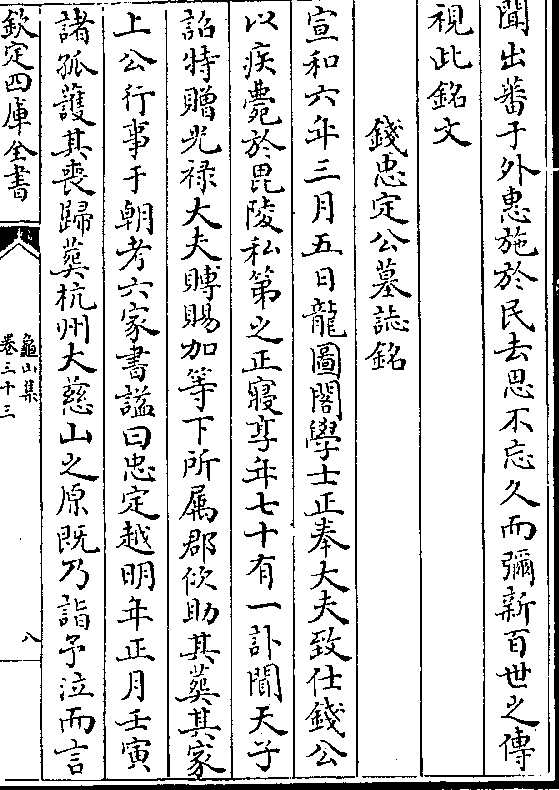 聞出蕃于外惠施於民去思不忘久而彌新百世之傳
視此銘文
錢忠定公墓誌銘
宣和六年三月五日龍圖閣學士正奉大夫致仕錢公
以疾薨於毘陵私第之正寢享年七十有一訃聞天子
詔特贈光禄大夫賻賜加等下所属郡佽助其葬其家
上公行事于朝考六家書諡曰忠定越明年正月壬寅
諸孤護其喪歸葬杭州大慈山之原既乃詣予泣而言
欽定四庫全書
龜山集
卷三十三
八